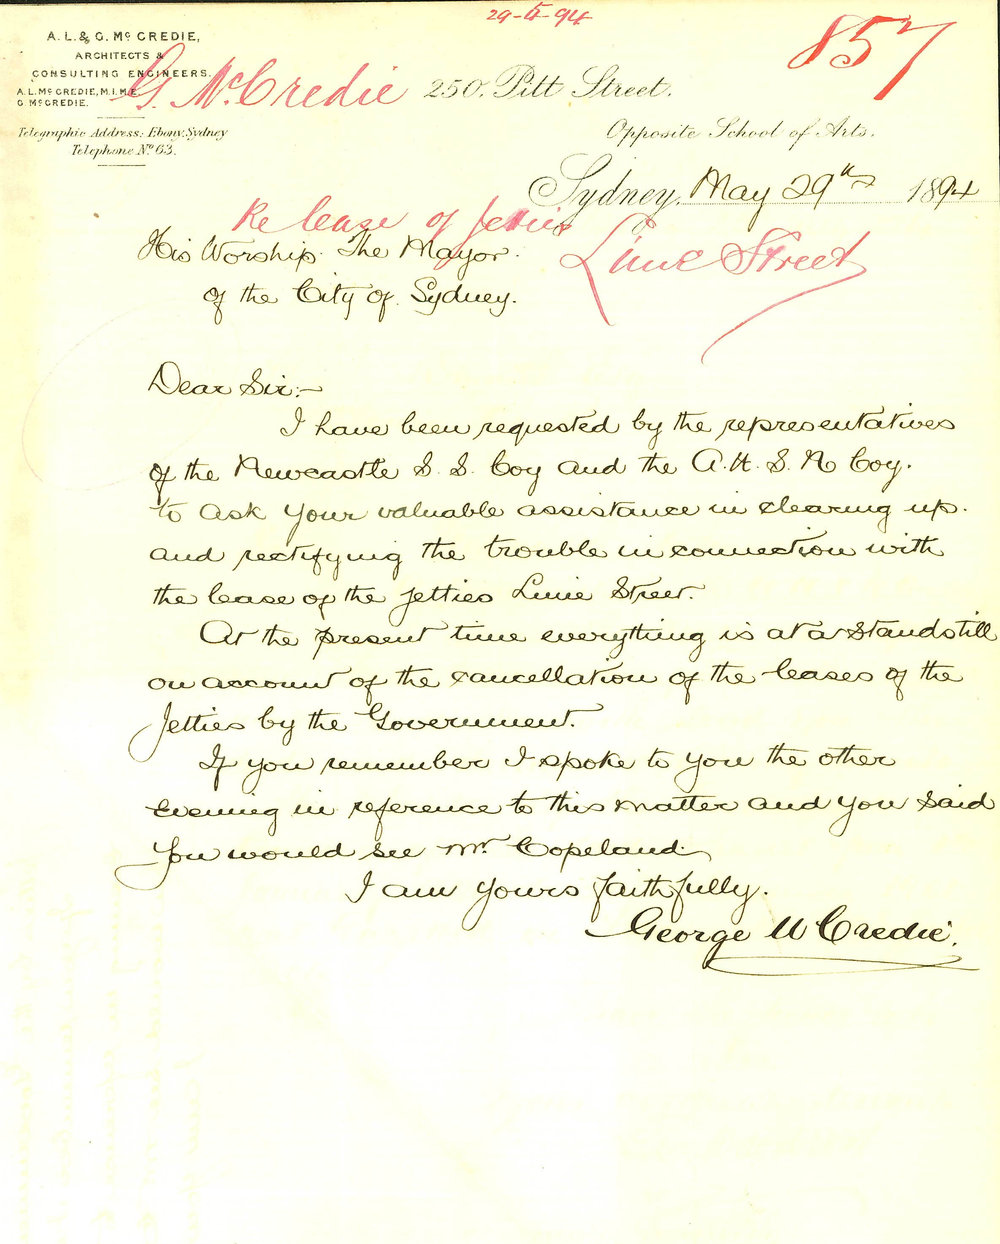 29-5-94
857
A. L. & G. Mc CREDIE,
ARCHITECTS &
CONSULTING ENGINEERS.
A. L. Mc CREDIE, M.I.M.E.
G McCREDIE.
G. McCredie
250. Pitt Street.
Telegraphic Address: Ebony, Sydney
Telephone No 63.
Opposite School of Arts.
Sydney, May 29th 1894
Re lease of Jetties
Lime Street
His Worship The Mayor
of the City of Sydney.
Dear Sir:-
I have been requested by the representatives
of the Newcastle S. S. Coy and the A. U. S. N Coy.
to ask your valuable assistance in clearing up
and rectifying the trouble in connection with
the lease of the Jetties Lime Street.
At the present time everything is at a standstill
on account of the cancellation of the leases of the
Jetties by the Government.
If you remember I spoke to you the other
evening in reference to this matter and you said
you would see Mr Copeland.
I am yours faithfully.
George McCredie.